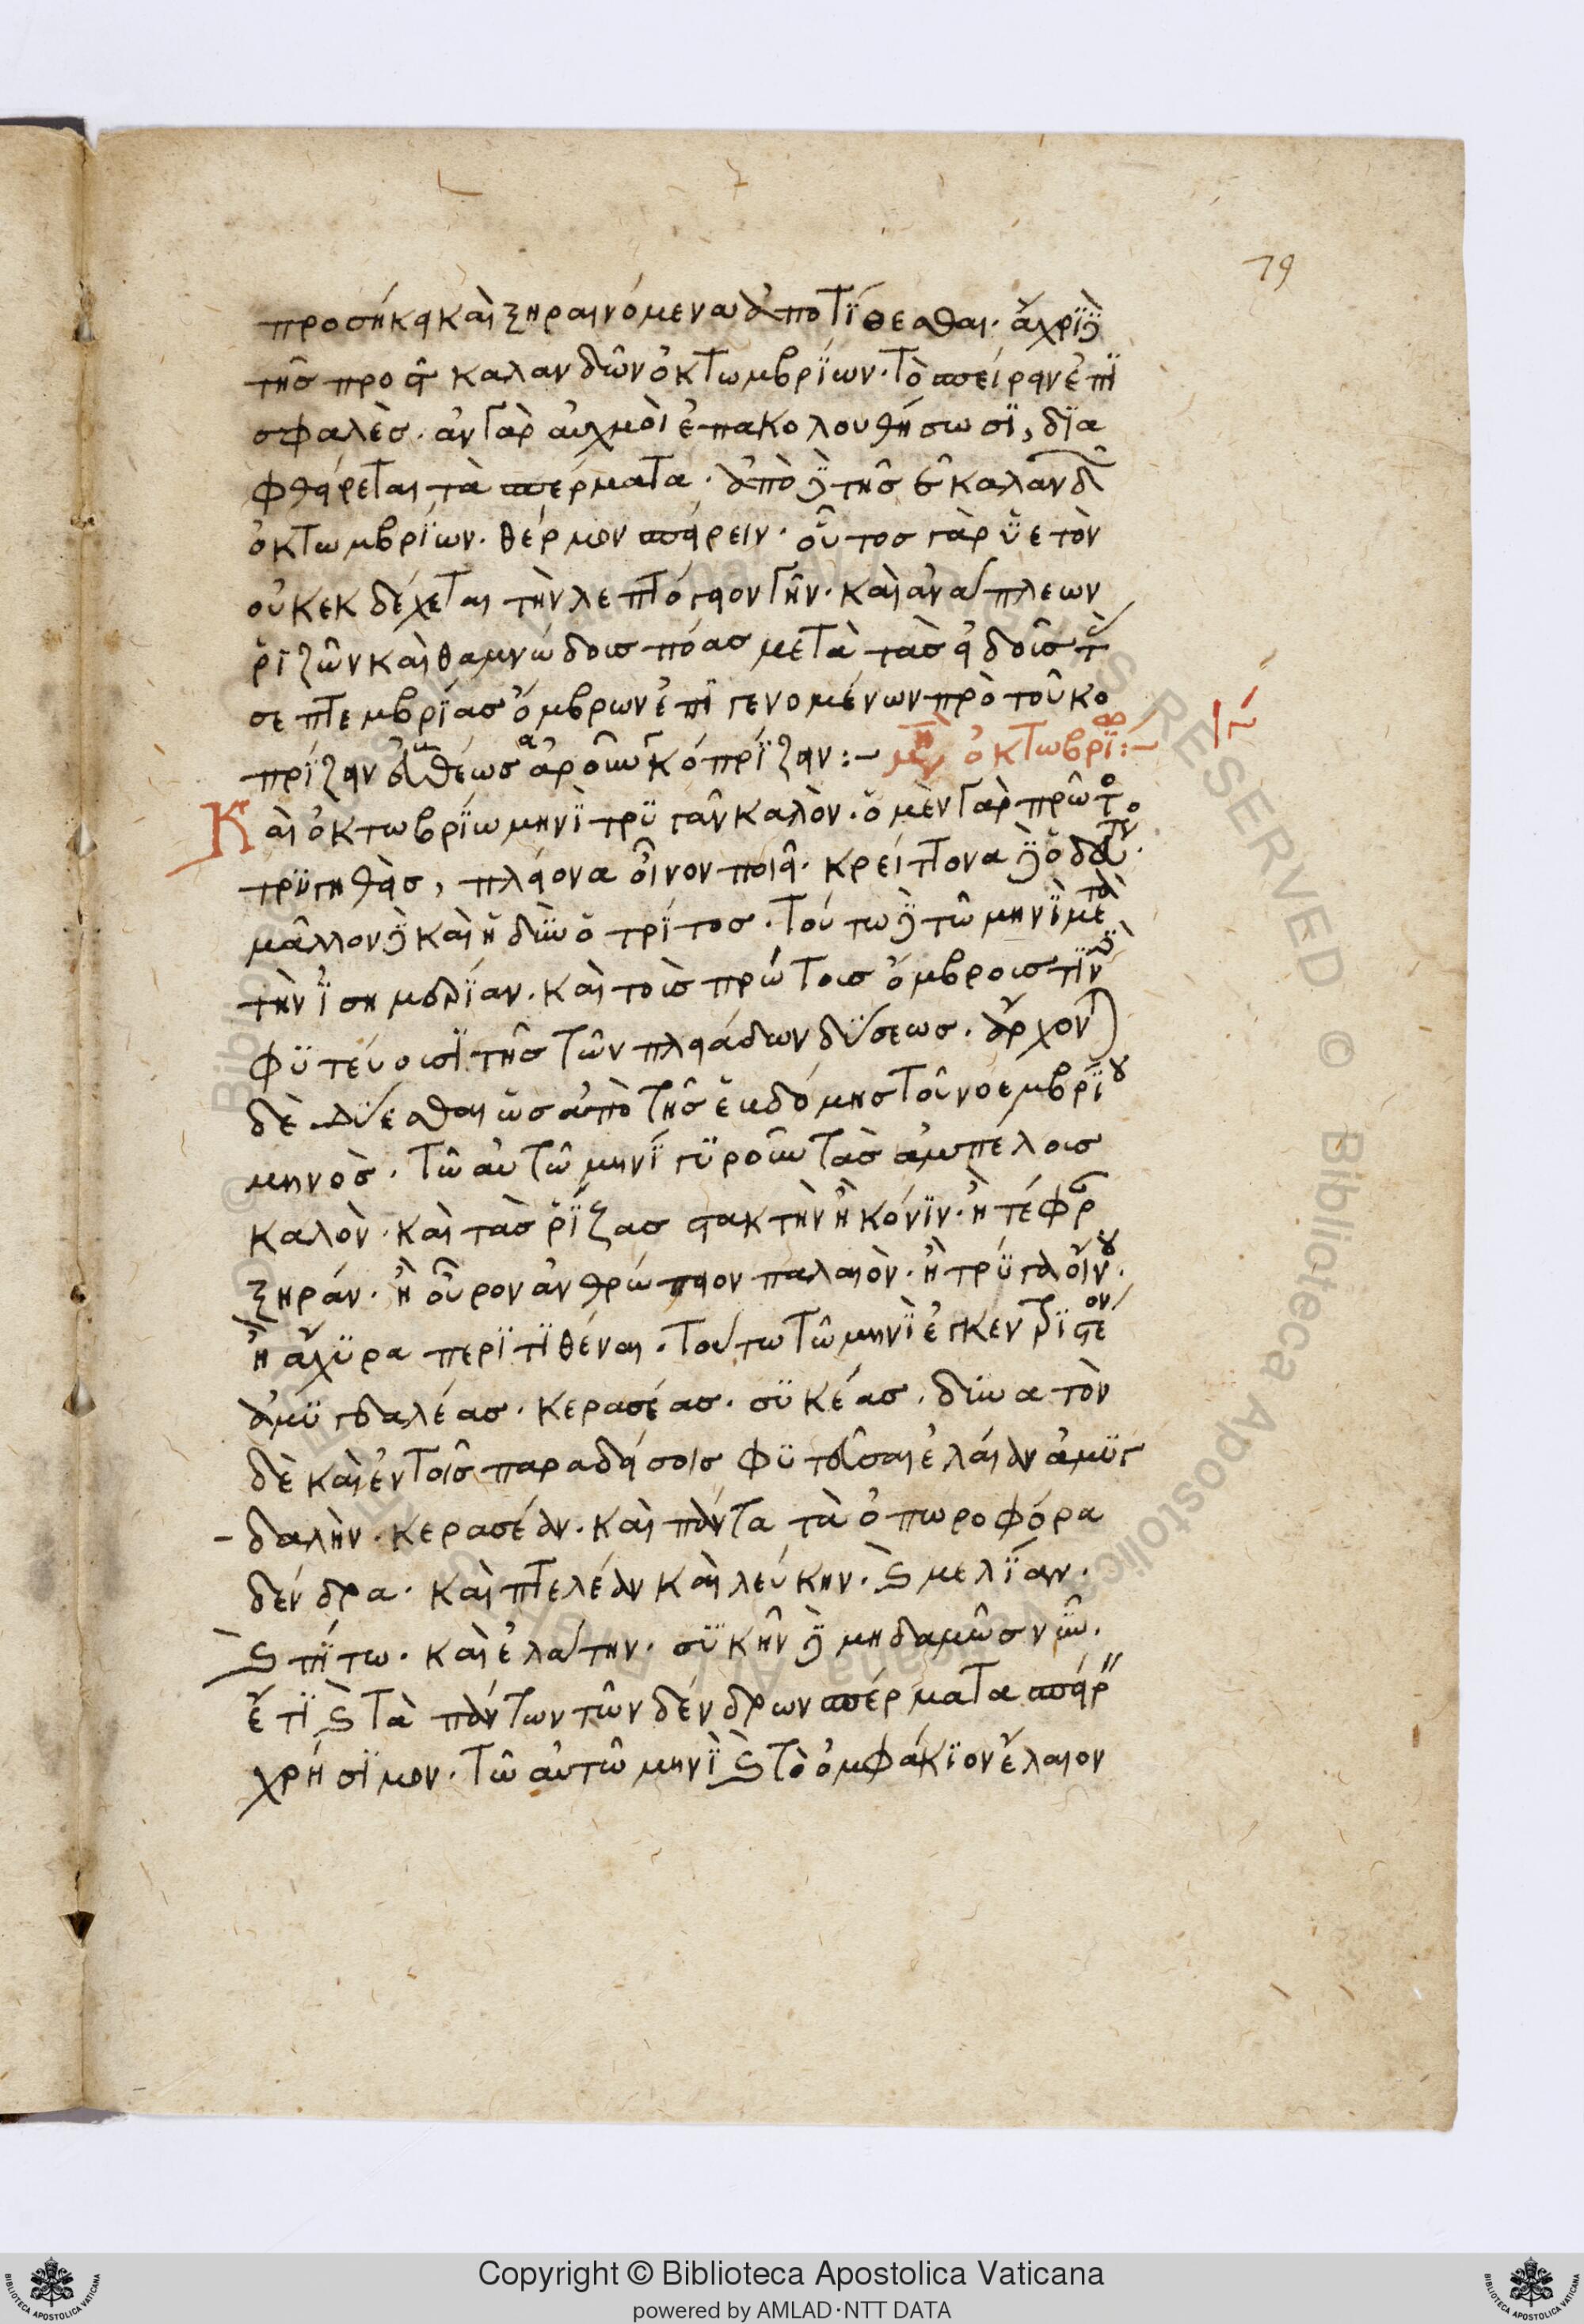 79
προσήκει καὶ ξηραινόμενα ἀποτίθεσθαι. ἄχρι δὲ
τῆς πρὸ ϛ καλανδῶν ὀκτωμβρίων. τὸ σπείρειν ἐπι
σφαλὲς. ἀν γὰρ αὐχμοὶ ἐπακολουθήσωσι, δια
φθείρεται τὰ σπέρματα. ἀπὸ δὲ τῆς καλανδ
ὀκτωμβρίων. θέρμον σπείρειν. οὗτος γὰρ ὕετὸν
οὐκ ἐκδέχεται τὴν λεπτόγειον γῆν. καὶ ἀνάπλεων
ῥιζῶν καὶ θαμνώδους πόας μετὰ τὰς εἰδοὺς τ
σεπτεμβρίας ὄμβρων ἐπιγενομένων πρὸ τοῦ κο
πρίζειν εὐθέως ἀροῦν κόπρίζειν:– μην ὀκτωβρι:–
ιγ
Και ὀκτωβρίω μηνὶ τρυγᾶν καλὸν. ὁ μὲν γὰρ πρῶτο
τρυγηθεὶς, πλείονα οἶνον ποιεῖ. κρείττονα δὲ ὁ δεύτ.
μᾶλλον δὲ καὶ ἡδὺν ὁ τρίτος. τούτω δὲ τῶ μηνὶ μετὰ
τὴν ἰσημερίαν. καὶ τοῖς πρώτοις ὄμβροις τινὲς
φυτεύουσι τῆς τῶν πλειάδων δύσεως. ἄρχονται
δὲ δύεσθαι ὡς ἀπὸ τῆς ἑβδόμης τοῦ νοεμβρίου
μηνὸς. τῶ αὐτῶ μηνὶ γυροῦν τὰς ἀμπέλους
καλὸν. καὶ τὰς ῥίζας στακτὴν ἢ κόνιν. ἢ τέφρ
ξηράν. ἢ οὖρον ἀνθρώπειον παλαιὸν. ἢ τρύγα οἴνου.
ἢ ἄχυρα περιτιθέναι. τούτω τῶ μηνὶ ἐγκεντριστέον
ἀμυγδαλέας. κερασέας. συκέας. δυνατὸν
δὲ καὶ ἐν τοῖς παραδείσοις φυτεῦσαι ἐλαίαν ἀμυγ
-δαλὴν. κερασέαν. καὶ πάντα τὰ ὀπωροφόρα
δένδρα. καὶ πτελέαν καὶ λεύκην. ϗ μελίαν.
ϗ πίτω. καὶ ἐλάτην. συκῆν δὲ μηδαμῶς νῦν.
ἔτι ϗ τὰ πάντων τῶν δένδρων σπέρματα σπείρ
χρήσιμον. τῶ αὐτῶ μηνὶ ϗ τὸ ὀμφάκιον ἔλαιον
© Biblioteca Apostolica Vaticana
Copyright © Biblioteca Apostolica Vaticana
powered by AMLAD·NTT DATA